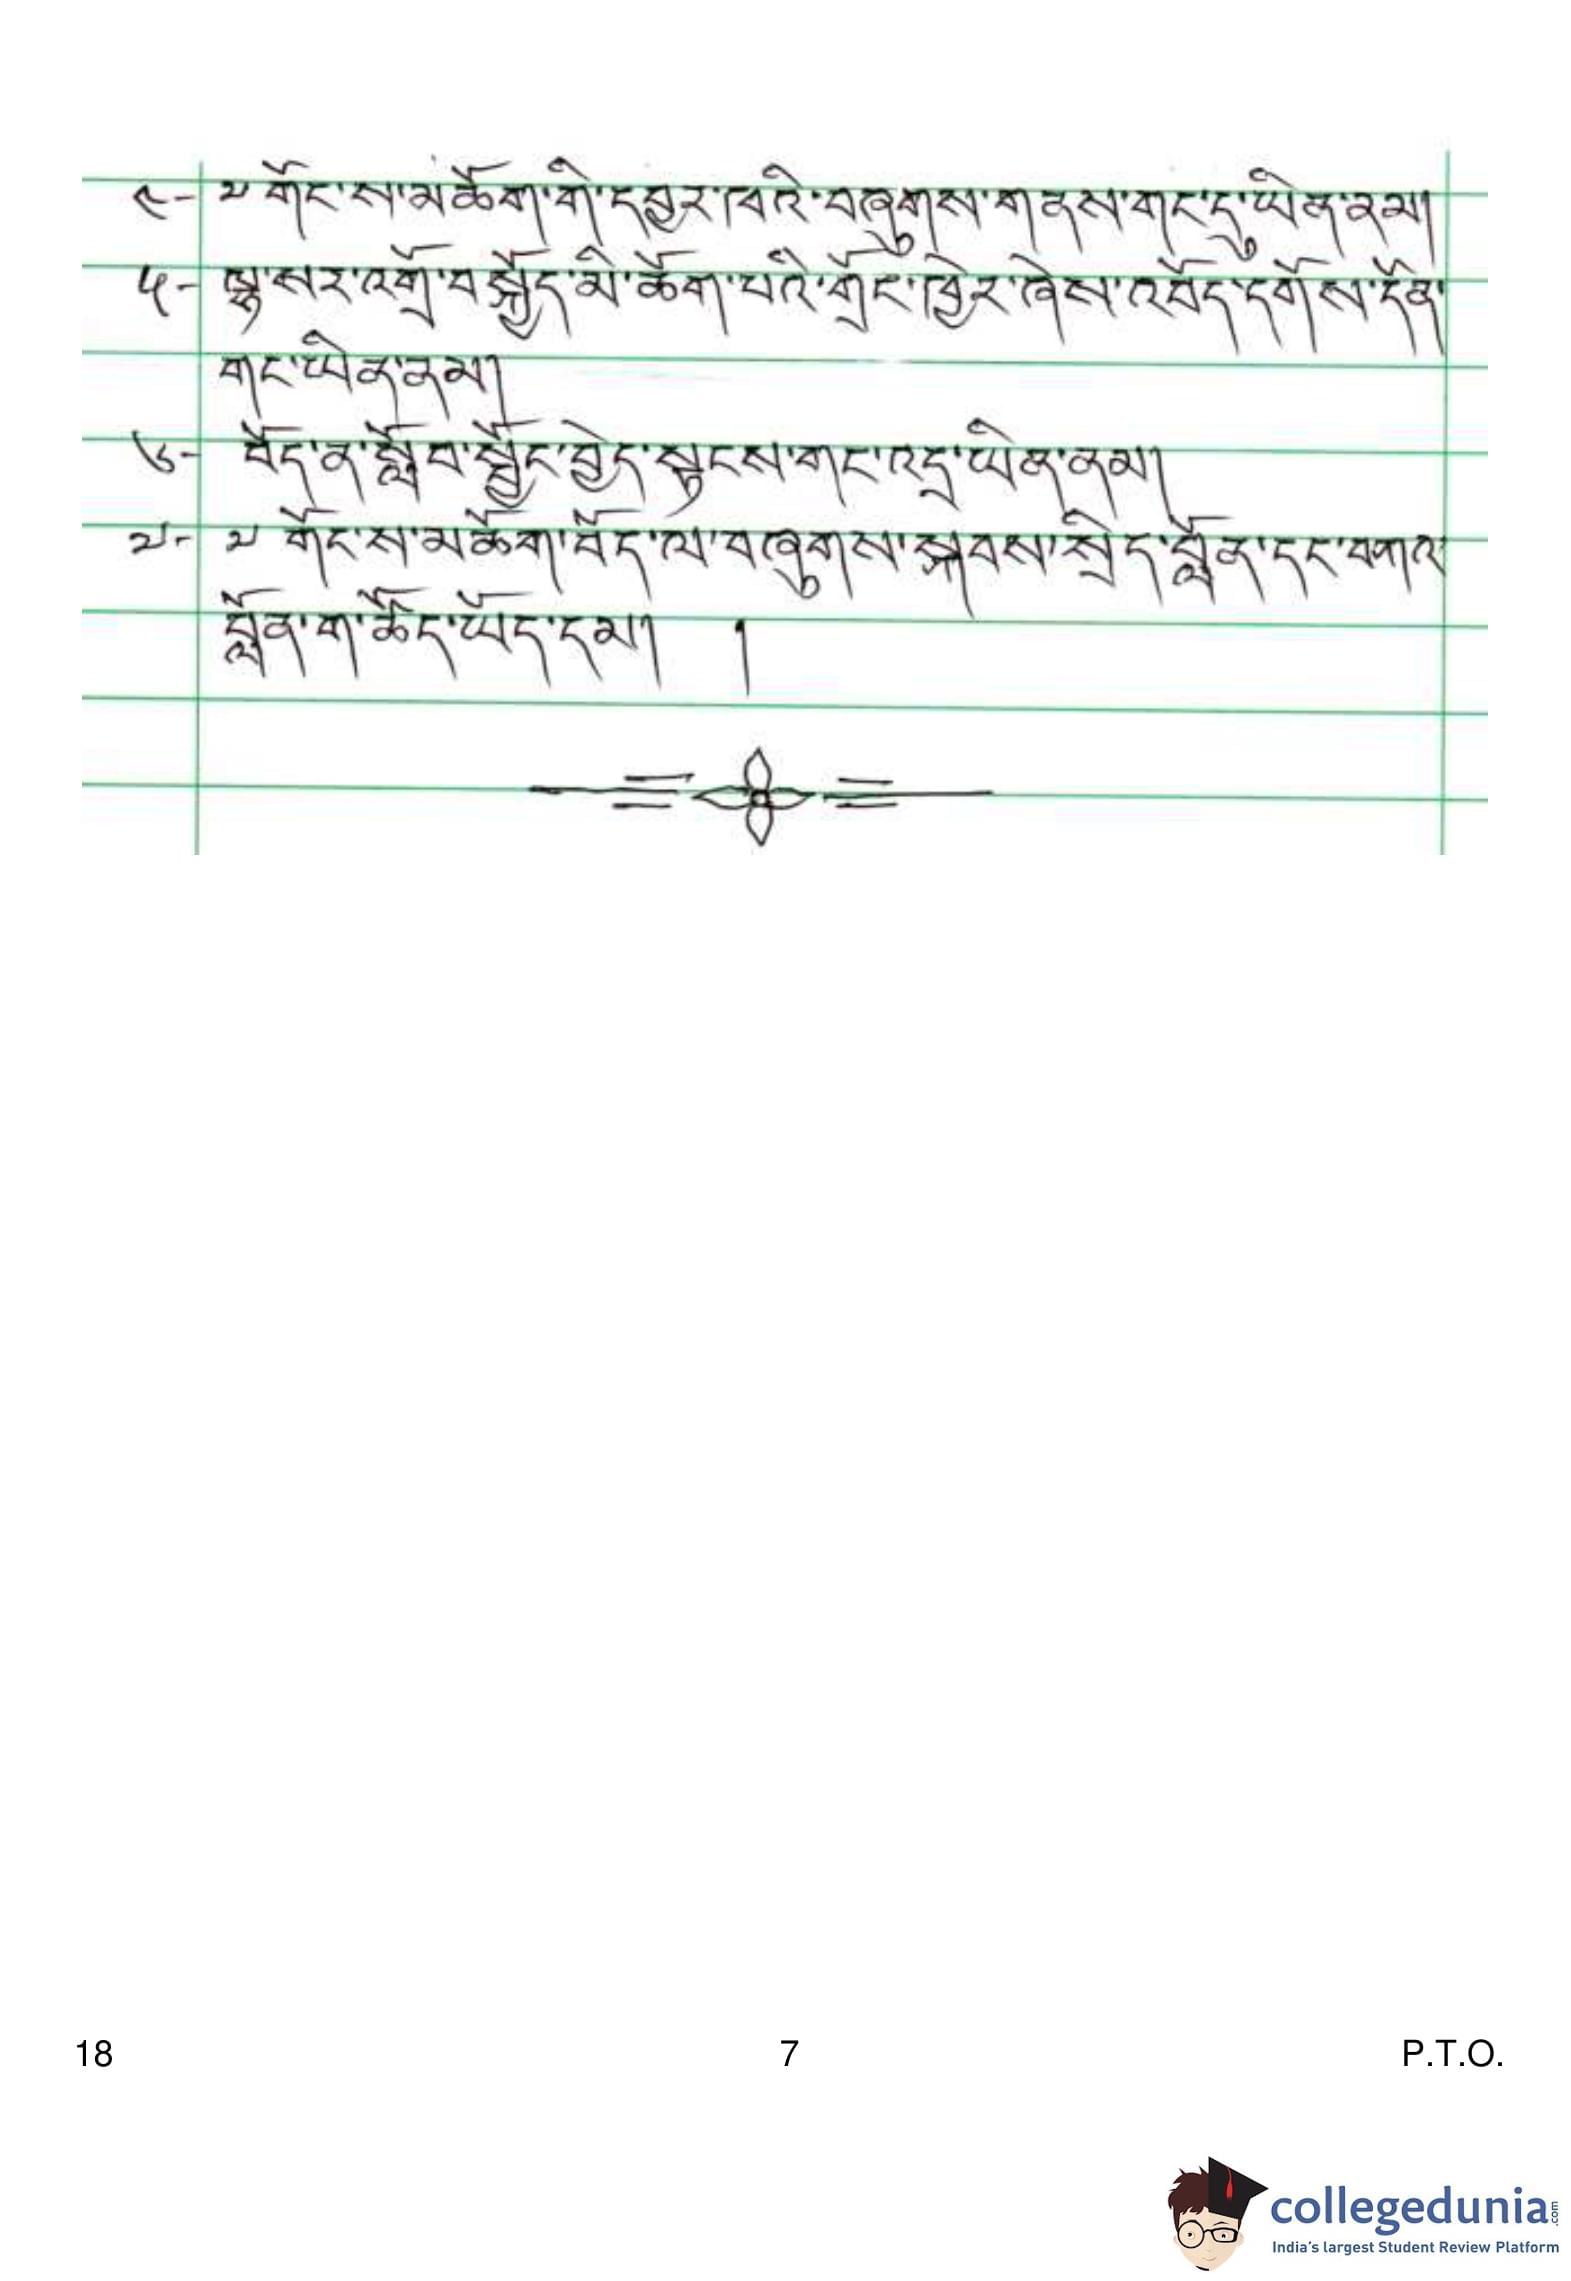 ༤- ༸གོང་ས་མཆོག་གི་དབྱར་ཁའི་བཞུགས་གནས་གང་དུ་ཡིན་ནམ།
༥- ལྷ་སར་འགྲོ་བསྐྱོད་མི་ཆོག་པའི་གྲོང་ཁྱེར་ཞེས་འབོད་དགོས་དོན་
གང་ཡིན་ནམ།
༦- བོད་ན་སློབ་སྦྱོང་བྱེད་སྟངས་གང་འདྲ་ཡིན་ནམ།
༧- ༸གོང་ས་མཆོག་བོད་ལ་བཞུགས་སྐབས་སྲིད་བློན་དང་བཀའ་
བློན་ག་ཚོད་ཡོད་དམ། །
18 7 P.T.O.
collegedunia.com
India's largest Student Review Platform